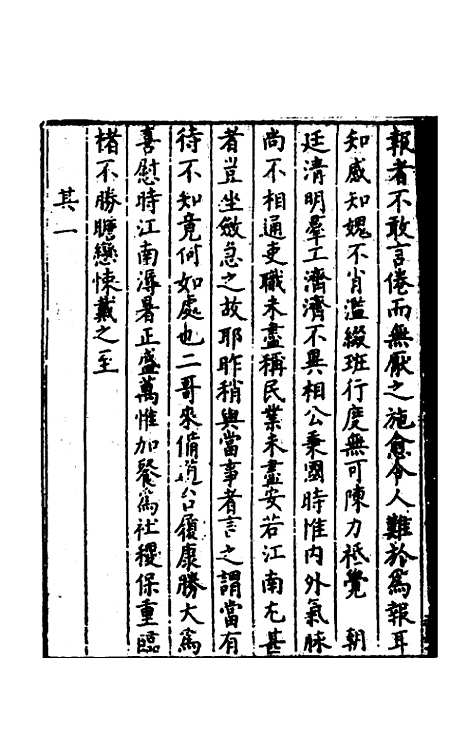 報者不敢言倦而無厭之施愈令人難於爲報耳
知感知媿不肖濫綴班行度無可陳力祗覺 朝
廷清明羣工濟濟不異相公秉國時惟内外氣脉
尚不相通吏職未盡稱民業未盡安若江南尢甚
者豈坐斂急之故耶昨稍與當事者言之謂當有
待不知竟何如處也二哥來備道台履康勝大爲
喜慰時江南溽暑正盛萬惟加餐爲社稷保重臨
楮不勝瞻戀悚戴之至
其一